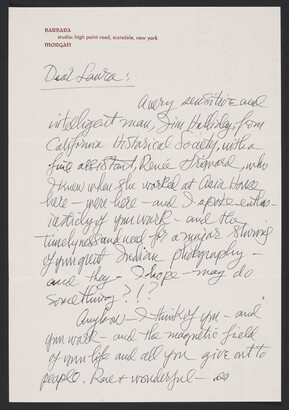 BARBARA
studio: high point road, scarsdale, new york
MORGAN
Dear Laura:
A very sensitive and
intelligent man, Jim Holliday, from
California Historical Society, with a
fine assistant, Renée, who
I knew when she worked at Asia House
here — were here — and I spoke enthus-
iastically of your work — and the
timeliness and need for a major showing
of your great Indian photography —
and they — I hope — may do
something?!?
Anyhow — I think of you — and
your work — and the magnetic field
of your life and all you give out to
people. Rare & wonderful —